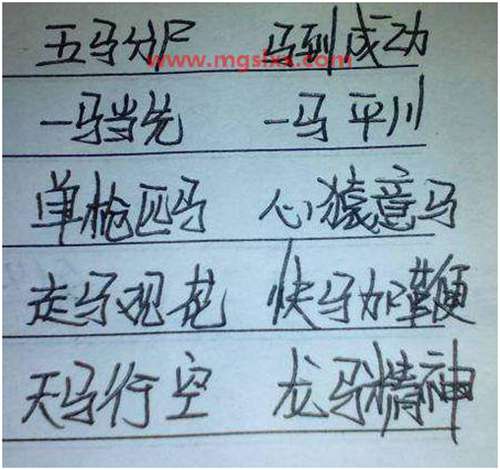 五马分尸 马到成功
www.mgslxx.com
一马当先 一马平川
单枪匹马 心猿意马
走马观花 快马加鞭
天马行空 龙马精神